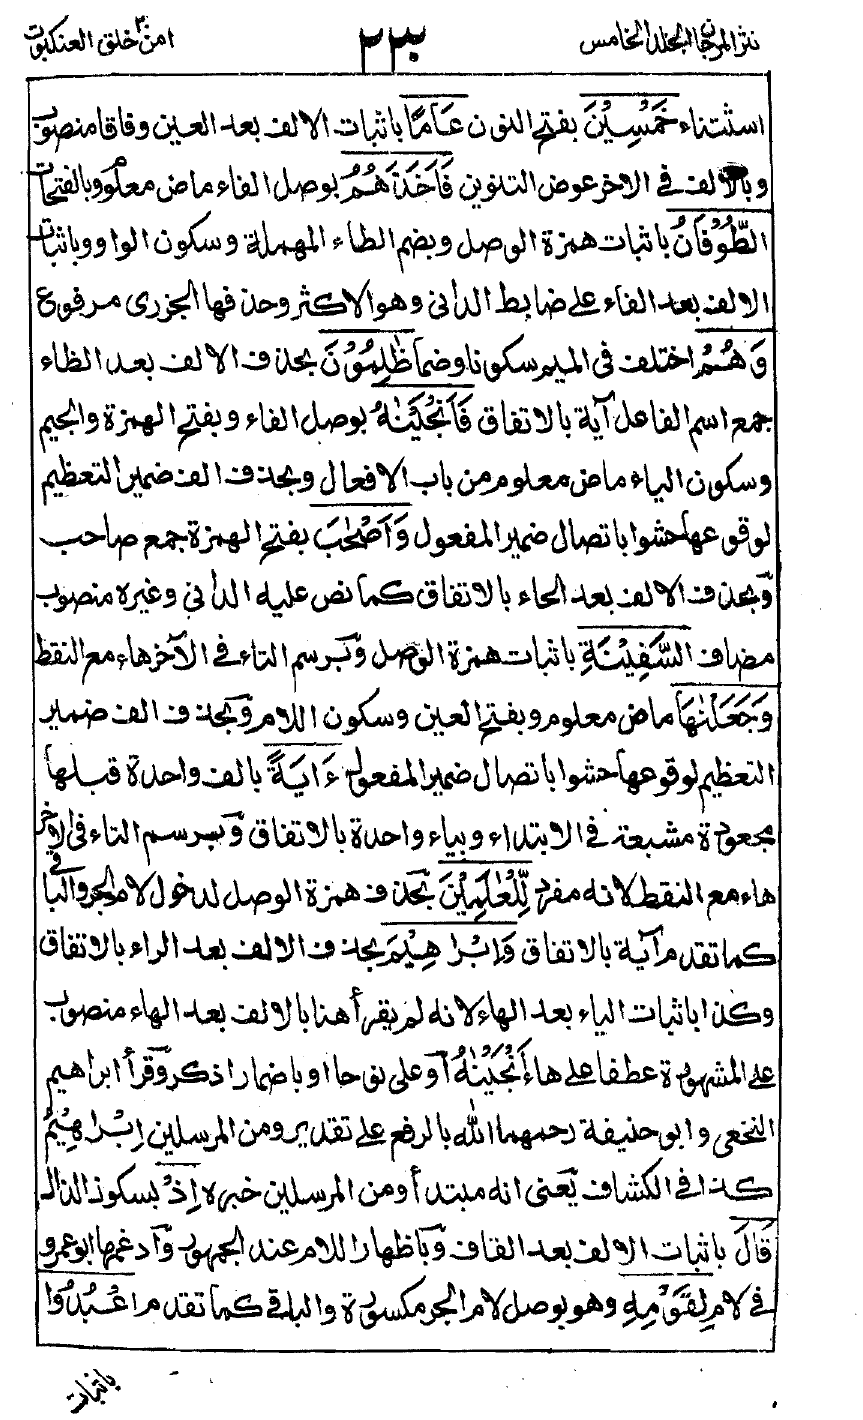 نثر المرجان المجلد الخامس
٢٣٠
امن خلق العنكبوت ٢٠
استثناء خَمْسِيْنَ بفتح النون عَامًا باثبات الالف بعد العين وفاقا منصوب
وبالالف فى الاخر عوض التنوين فَاَخَذَهُمُ بوصل الفاء ماض معلوم وبالفتحات
الطُّوْفَانُ باثبات همزة الوصل وبضم الطاء المهملة وسكون الواو وباثبات
الالف بعد الفاء على ضابط الدانى وهو الاكثر وحذفها الجزرى مرفوع
وَهُمْ اختلف فى الميم سكونا وضما ظٰلِمُوْنَ بحذف الالف بعد الظاء
جمع اسم الفاعل آية بالاتفاق فَاَنْجَيْنٰهُ بوصل الفاء وبفتح الهمزة والجيم
وسكون الياء ماض معلوم من باب الافعال وبحذف الف ضمير التعظيم
لوقوعها حشوا باتصال ضمير المفعول وَاَصْحٰبَ بفتح الهمزة جمع صاحب
وبحذف الالف بعد الحاء بالاتفاق كما نص عليه الدانى وغيره منصوب
مضاف السَّفِيْنَةِ باثبات همزة الوصل وبرسم التاء فى الآخر هاء مع النقط
وَجَعَلْنٰهَا ماض معلوم وبفتح العين وسكون اللام وبحذف الف ضمير
التعظيم لوقوعها حشوا باتصال ضمير المفعول ءَايَةً بالف واحدة قبلها
مجعودة مشبعة فى الابتداء وبياء واحدة بالاتفاق وبرسم التاء فى الاخر
هاء مع النقط لانه مفرد لِّلْعٰلَمِيْنَ بحذف همزة الوصل لدخول لام الجر والباقى
كما تقدم آية بالاتفاق وَاِبْرٰهِيْمَ بحذف الالف بعد الراء بالاتفاق
وكذا باثبات الياء بعد الهاء لانه لم يقرأ هنا بالالف بعد الهاء منصوب
على المشهورة عطفا على هاء اَنْجَيْنٰهُ او على نوحا او باضمار اذكر وقرأ ابراهيم
النخعى وابو حنيفة رحمهما الله بالرفع على تقدير ومن المرسلين اِبْرٰهِيْمُ
كذا فى الكشاف يعنى انه مبتدأ ومن المرسلين خبره اِذْ بسكون الذال
قَالَ باثبات الالف بعد القاف وباظهار اللام عند الجمهور وادغمها ابو عمرو
فى لام لِقَوْمِهِ وهو بوصل لام الجر مكسورة والباقى كما تقدم اعْبُدُوا
باثبات